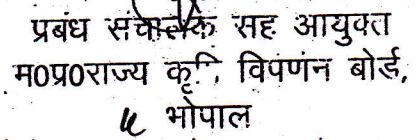 प्रबंध संचालक सह आयुक्त
म0प्र0राज्य कृषि विपणंन बोर्ड,
भोपाल